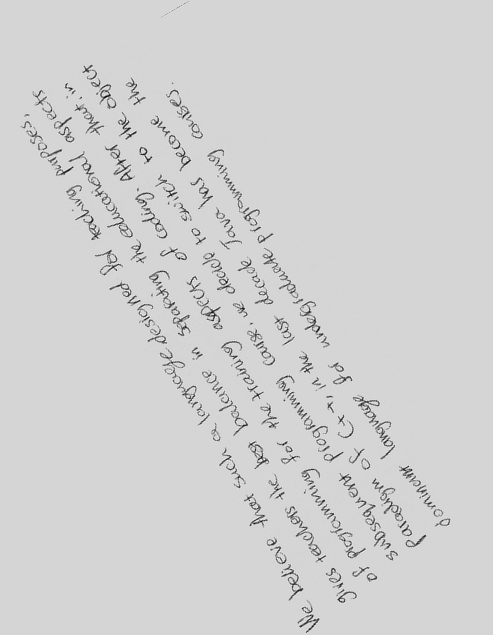 We believe that such a language designed for teaching purposes,
gives teachers the best balance in separating the educational aspects
of programming for the training aspects of coding. After that, in
subsequent programming course, we decide to switch to the object
Paradigm of C++, in the last decade Java has become the
dominant language for undergraduate programming courses.